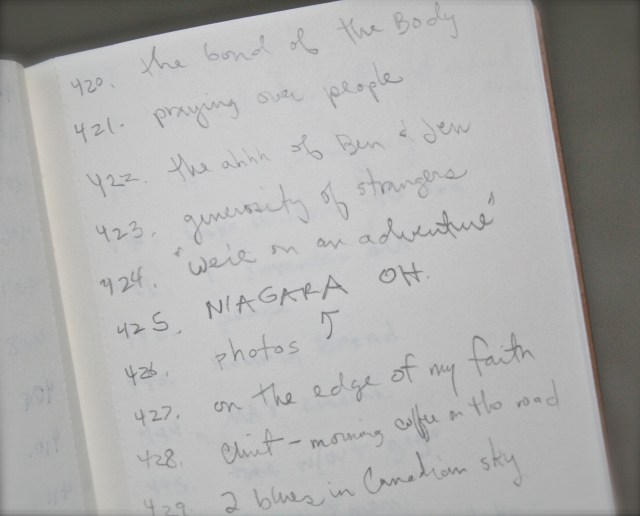 420. the bond of the Body
421. praying over people
422. the ahhh of Ben & Jen
423. generosity of strangers
424. "we're on an adventure"
425. NIAGARA OH.
426. photos ↑
427. on the edge of my faith
428. Clint - morning coffee on the road
429. 2 blues in Canadian sky